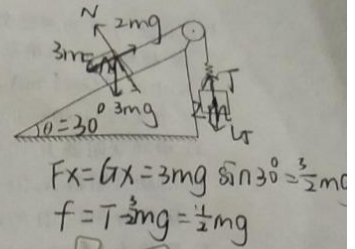 N
2mg
3m
3mg
T
2m
G
θ=30°
Fx=Gx=3mg sin30°=3/2mg
f=T-3/2mg=1/2mg